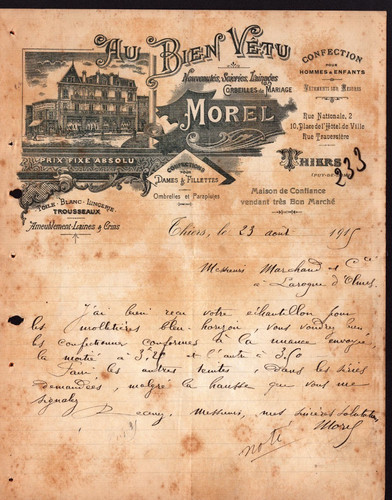 AU BIEN VÊTU
Nouveautés, Soieries, Lainages
CORBEILLES DE MARIAGE
MOREL
CONFECTION
POUR
HOMMES & ENFANTS
VÊTEMENTS SUR MESURES
Rue Nationale, 2
10, Place de l'Hôtel de Ville
Rue Traversière
PRIX FIXE ABSOLU
THIERS
(PUY-DE-
233
CONFECTIONS
POUR
DAMES & FILLETTES
Ombrelles et Parapluies
Maison de Confiance
vendant très Bon Marché
TOILE - BLANC - LINGERIE
TROUSSEAUX
Ameublement - Laines & Crins
Thiers, le 23 août 1915
Messieurs Marchand & Cie
à Laroque d'Olmes.
J'ai bien reçu votre échantillon pour
les molletières bleu-horizon, vous voudrez bien
les confectionner conformes à la nuance envoyée,
la moitié à 3.25 et l'autre à 3.50
Faire les autres teintes, dans les séries
demandées, malgré la hausse que vous me
signalez
Recevez, Messieurs, mes sincères salutations
Morel
noté